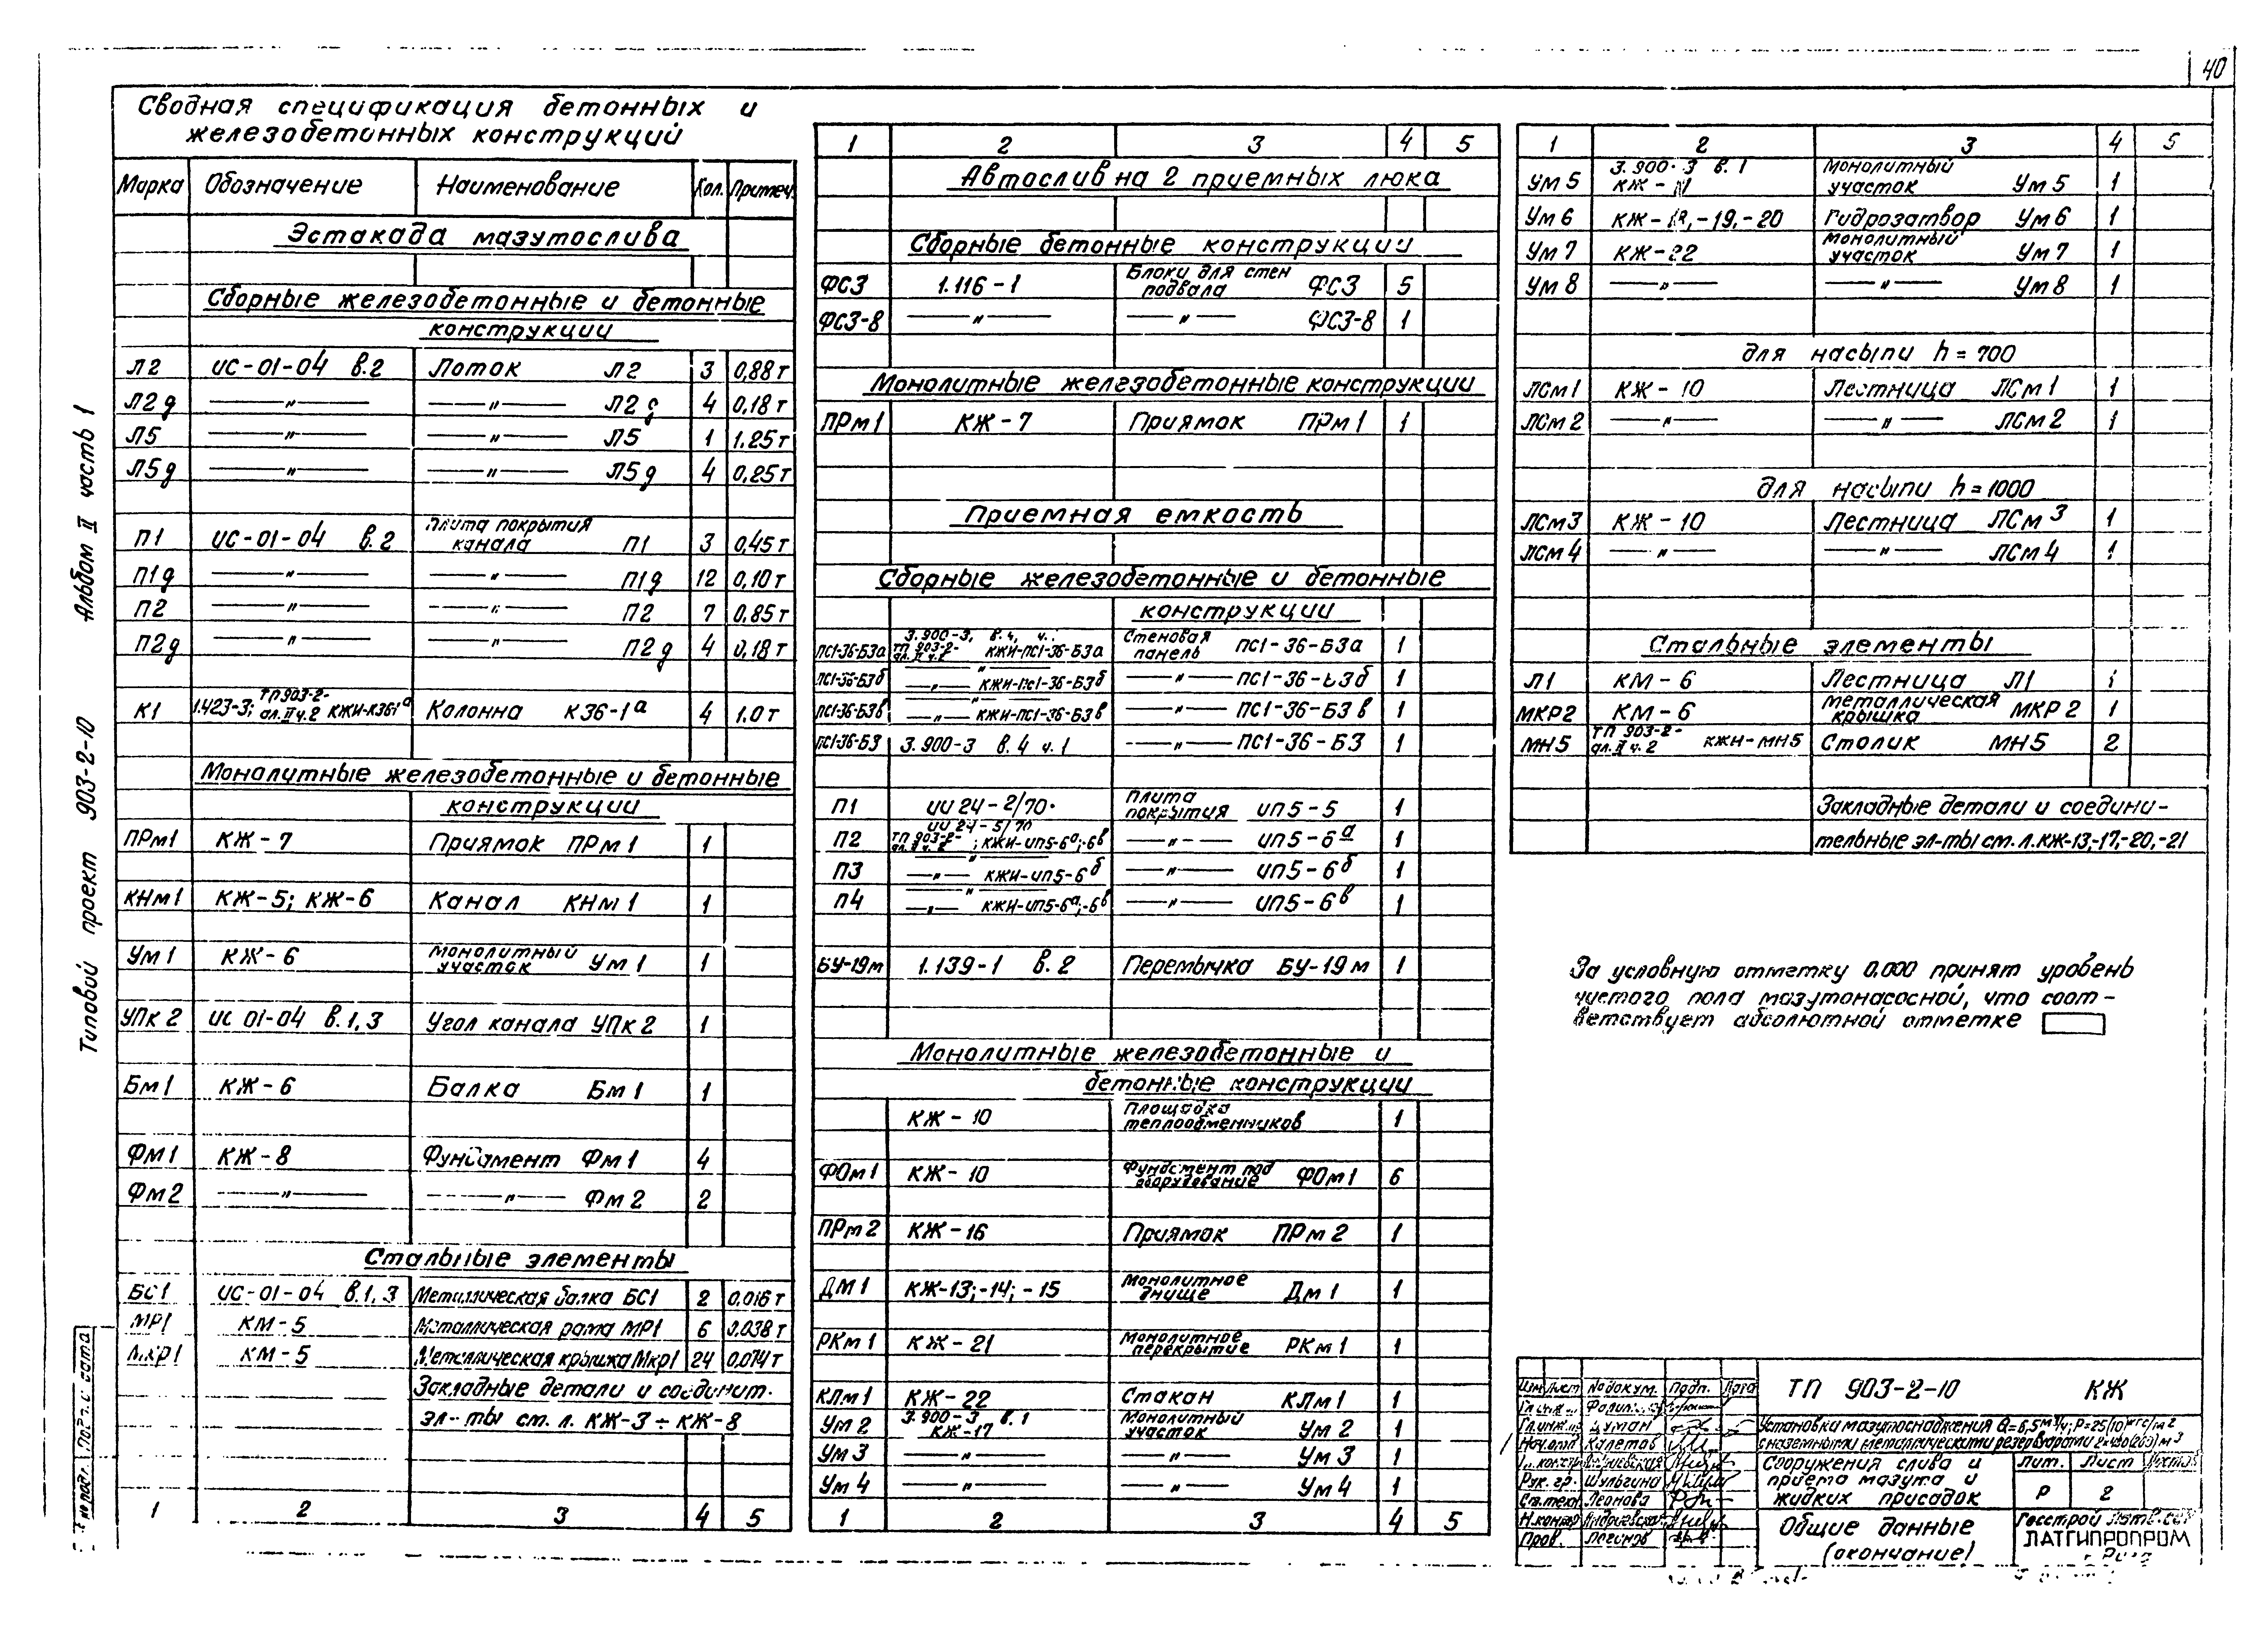 40
Сводная спецификация бетонных и
железобетонных конструкций
Марка Обозначение Наименование Кол. Примеч.
Эстакада мазутослива
Сборные железобетонные и бетонные
конструкции
Л2 ИС-01-04 в.2 Лоток Л2 3 0,88т
Л2д —"— —"— Л2д 4 0,18т
Л5 —"— —"— Л5 1 1.25т
Л5д —"— —"— Л5д 4 0,25т
П1 ИС-01-04 в.2 Плита покрытия канала П1 3 0,45т
П1д —"— —"— П1д 12 0,10т
П2 —"— —"— П2 7 0,85т
П2д —"— —"— П2д 4 0,18т
К1 1.423-3; ТП903-2- ал.II ч.2 КЖИ-К36-1а Колонна К36-1а 4 1.0т
Монолитные железобетонные и бетонные
конструкции
ПРм1 КЖ-7 Приямок ПРм1 1
КНм1 КЖ-5; КЖ-6 Канал КНм1 1
Ум1 КЖ-6 Монолитный участок Ум1 1
УПк2 ИС 01-04 в.1,3 Угол канала УПк2 1
Бм1 КЖ-6 Балка Бм1 1
Фм1 КЖ-8 Фундамент Фм1 4
Фм2 —"— —"— Фм2 2
Стальные элементы
БС1 ИС-01-04 в.1,3 Металлическая балка БС1 2 0,016т
МР1 КМ-5 Металлическая рама МР1 6 0,038т
Мкр1 КМ-5 Металлическая крышка Мкр1 24 0,074т
Закладные детали и соединит.
эл-ты см. л. КЖ-3÷КЖ-8
1 2 3 4 5
1 2 3 4 5
Автослив на 2 приемных люка
Сборные бетонные конструкции
ФС3 1.116-1 Блоки для стен подвала ФС3 5
ФС3-8 —"— —"— ФС3-8 1
Монолитные железобетонные конструкции
ПРм1 КЖ-7 Приямок ПРм1 1
Приемная емкость
Сборные железобетонные и бетонные
конструкции
ПС1-36-Б3а 3.900-3, в.4, ч. ТП 903-2- ал.II ч.2 КЖИ-ПС1-36-Б3а Стеновая панель ПС1-36-Б3а 1
ПС1-36-Б3б —"— —"— КЖИ-ПС1-36-Б3б —"— ПС1-36-Б3б 1
ПС1-36-Б3в —"— КЖИ-ПС1-36-Б3в —"— ПС1-36-Б3в 1
ПС1-36-Б3 3.900-3 в.4 ч.1 —"— ПС1-36-Б3 1
П1 ИИ24-2/70 Плита покрытия ИП5-5 1
П2 ИИ24-5/70 ТП 903-2- ал.II ч.2 ; КЖИ-ИП5-6а;-6в —"— ИП5-6а 1
П3 —"— КЖИ-ИП5-6б —"— ИП5-6б 1
П4 —"— —"— КЖИ-ИП5-6а;-6в —"— ИП5-6в 1
БУ-19м 1.139-1 в.2 Перемычка БУ-19м 1
Монолитные железобетонные и
бетонные конструкции
КЖ-10 Площадка теплообменников 1
ФОм1 КЖ-10 Фундамент под оборудование ФОм1 6
ПРм2 КЖ-16 Приямок ПРм2 1
Дм1 КЖ-13;-14;-15 Монолитное днище Дм1 1
РКм1 КЖ-21 Монолитное перекрытие РКм1 1
КЛм1 КЖ-22 Стакан КЛм1 1
Ум2 3.900-3 в.1 КЖ-17 Монолитный участок Ум2 1
Ум3 —"— —"— Ум3 1
Ум4 —"— —"— Ум4 1
1 2 3 4 5
1 2 3 4 5
Ум5 3.900-3 в.1 КЖ- Монолитный участок Ум5 1
Ум6 КЖ-18,-19,-20 Гидрозатвор Ум6 1
Ум7 КЖ-22 Монолитный участок Ум7 1
Ум8 —"— —"— Ум8 1
для насыпи h=700
ЛСм1 КЖ-10 Лестница ЛСм1 1
ЛСм2 —"— —"— ЛСм2 1
для насыпи h=1000
ЛСм3 КЖ-10 Лестница ЛСм3 1
ЛСм4 —"— —"— ЛСм4 1
Стальные элементы
Л1 КМ-6 Лестница Л1 1
МКР2 КМ-6 Металлическая крышка МКР2 1
МН5 ТП 903-2- ал.II ч.2 КЖИ-МН5 Столик МН5 2
Закладные детали и соедини-
тельные эл-ты см. л.КЖ-13,-17,-20,-21
За условную отметку 0.000 принят уровень
чистого пола мазутонасосной, что соот-
ветствует абсолютной отметке
Изм Лист №докум. Подп. Дата
Гл.инж.п Шуман
Нач.отд Калетов
Рук. гр. Шульгина
Ст.техн. Леонова
Н.контр Андриевская
Пров. Логинов
ТП 903-2-10 КЖ
Установка мазутоснабжения Q=6,5м³/ч; Р=25(10)кгс/см²
с наземными металлическими резервуарами
Сооружения слива и
приема мазута и
жидких присадок
Лит. Лист Листов
Р 2
Общие данные
(окончание)
Госстрой Латв.ССР
ЛАТГИПРОПРОМ
г. Рига
Типовой проект 903-2-10 Альбом II часть 1